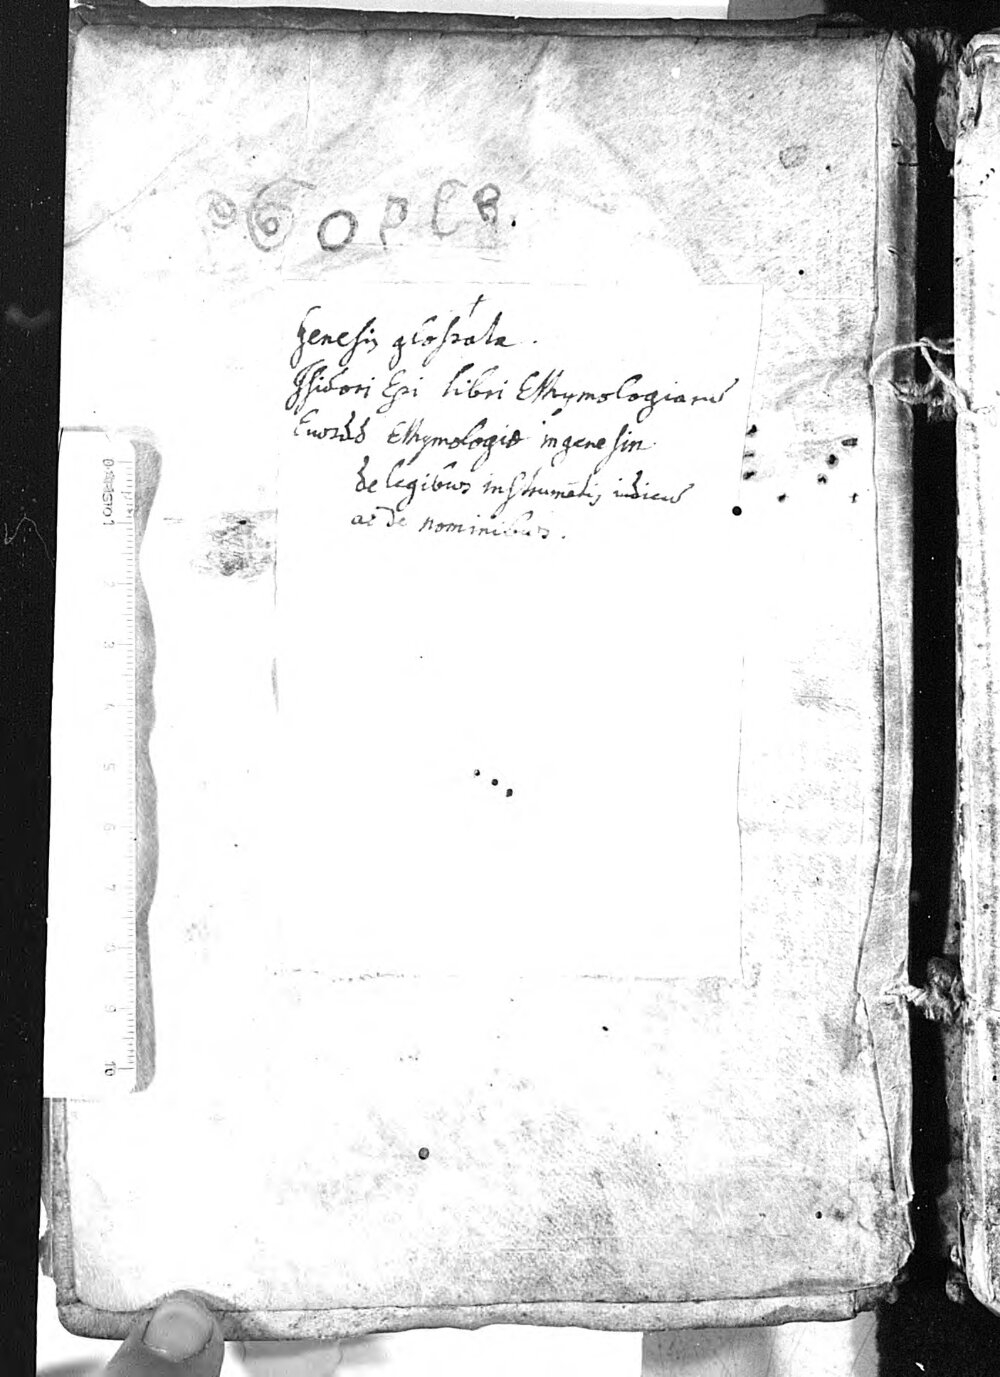 Genesis glosata.
Isidori Epi libri Ethymologiarũ
Ethymologiæ in genesin
de legibus instrumẽtis iudicũ
ac de nominibus.
0
1
2
3
4
5
6
7
8
9
10